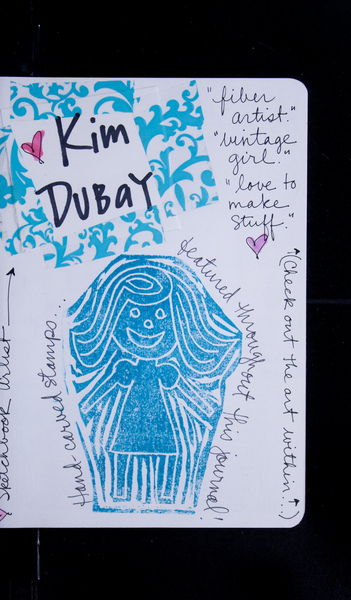 Kim
Dubay
"fiber
artist."
"vintage
girl."
"love to
make
stuff."
Hand-carved stamps...
featured throughout this journal!
(Check out the art within!:)
Sketchbook Artist